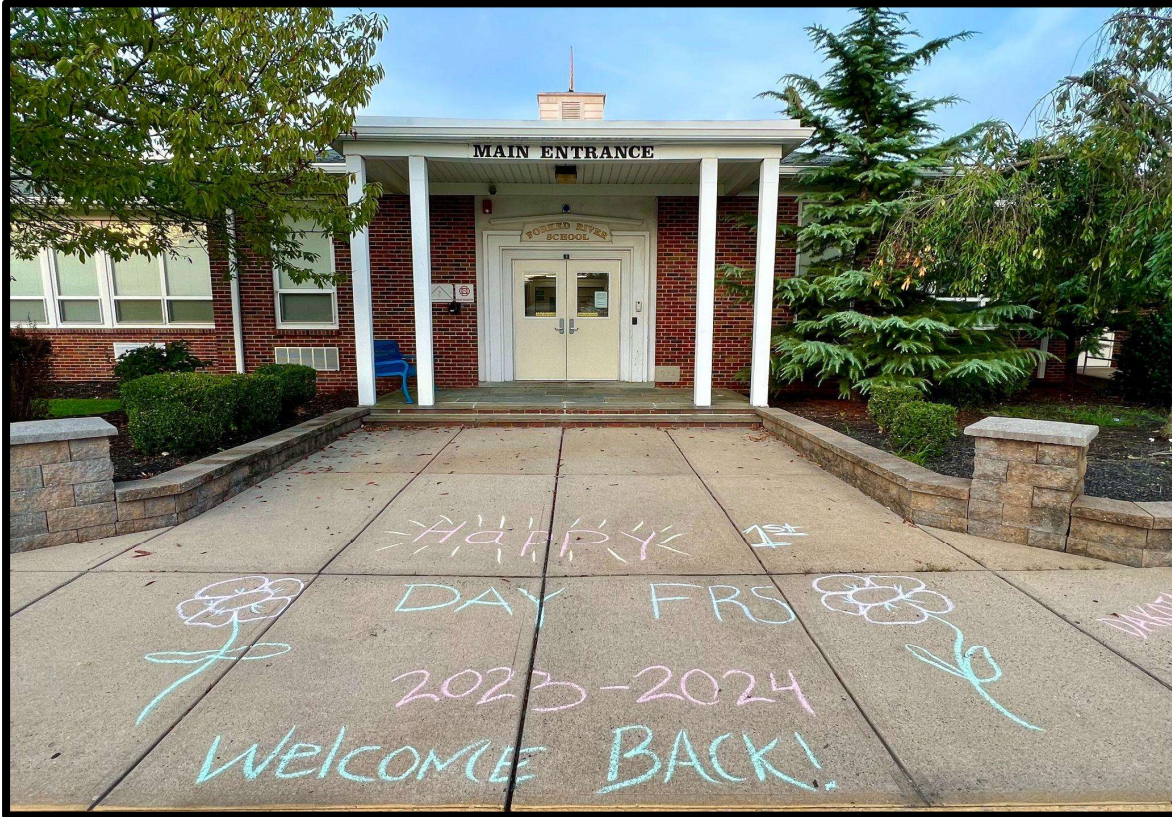 MAIN ENTRANCE
FORKED RIVER
SCHOOL
HAPPY 1st
DAY FRS
2023-2024
WELCOME BACK!